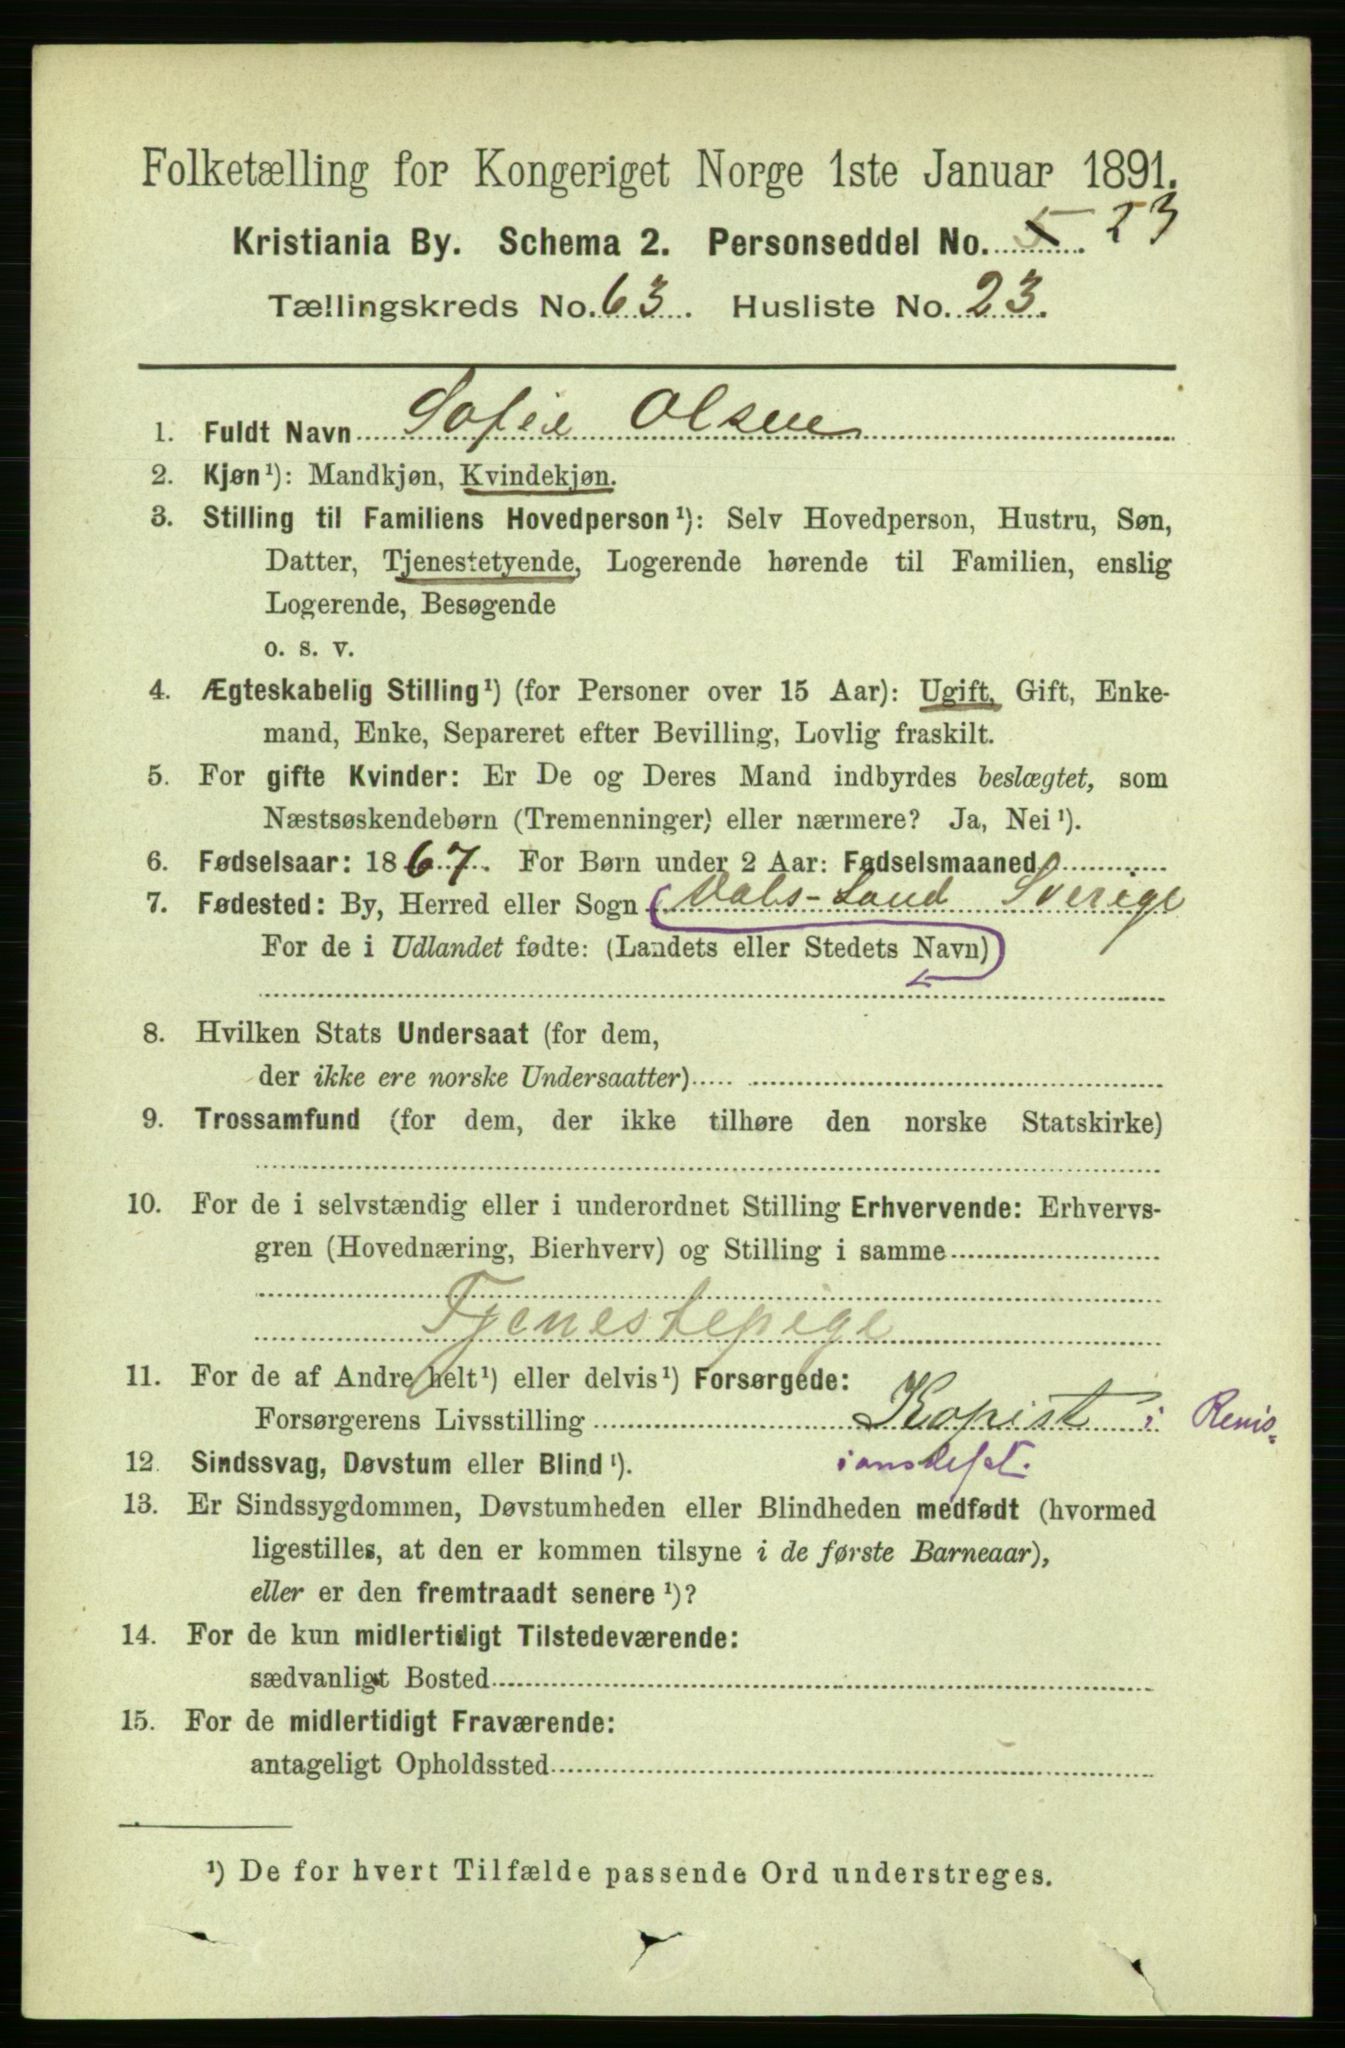 Folketælling for Kongeriget Norge 1ste Januar 1891.
Kristiania By. Schema 2. Personseddel No. 5. 23
Tællingskreds No. 63. Husliste No. 23.
1. Fuldt Navn Sofie Olsen
2. Kjøn¹): Mandkjøn, Kvindekjøn.
3. Stilling til Familiens Hovedperson¹): Selv Hovedperson, Hustru, Søn,
Datter, Tjenestetyende, Logerende hørende til Familien, enslig
Logerende, Besøgende
o. s. v.
4. Ægteskabelig Stilling¹) (for Personer over 15 Aar): Ugift, Gift, Enke-
mand, Enke, Separeret efter Bevilling, Lovlig fraskilt.
5. For gifte Kvinder: Er De og Deres Mand indbyrdes beslægtet, som
Næstsøskendebørn (Tremenninger) eller nærmere? Ja, Nei¹).
6. Fødselsaar: 1867. For Børn under 2 Aar: Fødselsmaaned
7. Fødested: By, Herred eller Sogn Dals-Land Sverige
For de i Udlandet fødte: (Landets eller Stedets Navn)
8. Hvilken Stats Undersaat (for dem,
der ikke ere norske Undersaatter)
9. Trossamfund (for dem, der ikke tilhøre den norske Statskirke)
10. For de i selvstændig eller i underordnet Stilling Erhvervende: Erhvervs-
gren (Hovednæring, Bierhverv) og Stilling i samme
Tjenestepige
11. For de af Andre helt¹) eller delvis¹) Forsørgede:
Forsørgerens Livsstilling Kopist i Revis-
12. Sindssvag, Døvstum eller Blind¹). ionsdepat.
13. Er Sindssygdommen, Døvstumheden eller Blindheden medfødt (hvormed
ligestilles, at den er kommen tilsyne i de første Barneaar),
eller er den fremtraadt senere¹)?
14. For de kun midlertidigt Tilstedeværende:
sædvanligt Bosted
15. For de midlertidigt Fraværende:
antageligt Opholdssted
¹) De for hvert Tilfælde passende Ord understreges.